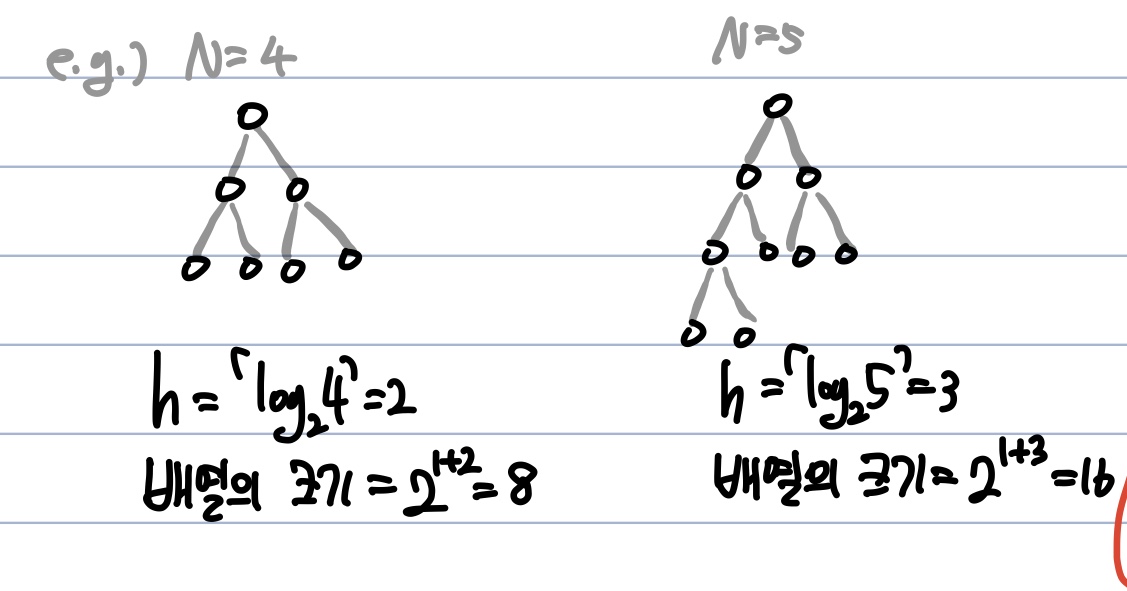 e.g.) N=4
N=5
h=⌈log₂4⌉=2
배열의 크기=2¹⁺²=8
h=⌈log₂5⌉=3
배열의 크기=2¹⁺³=16